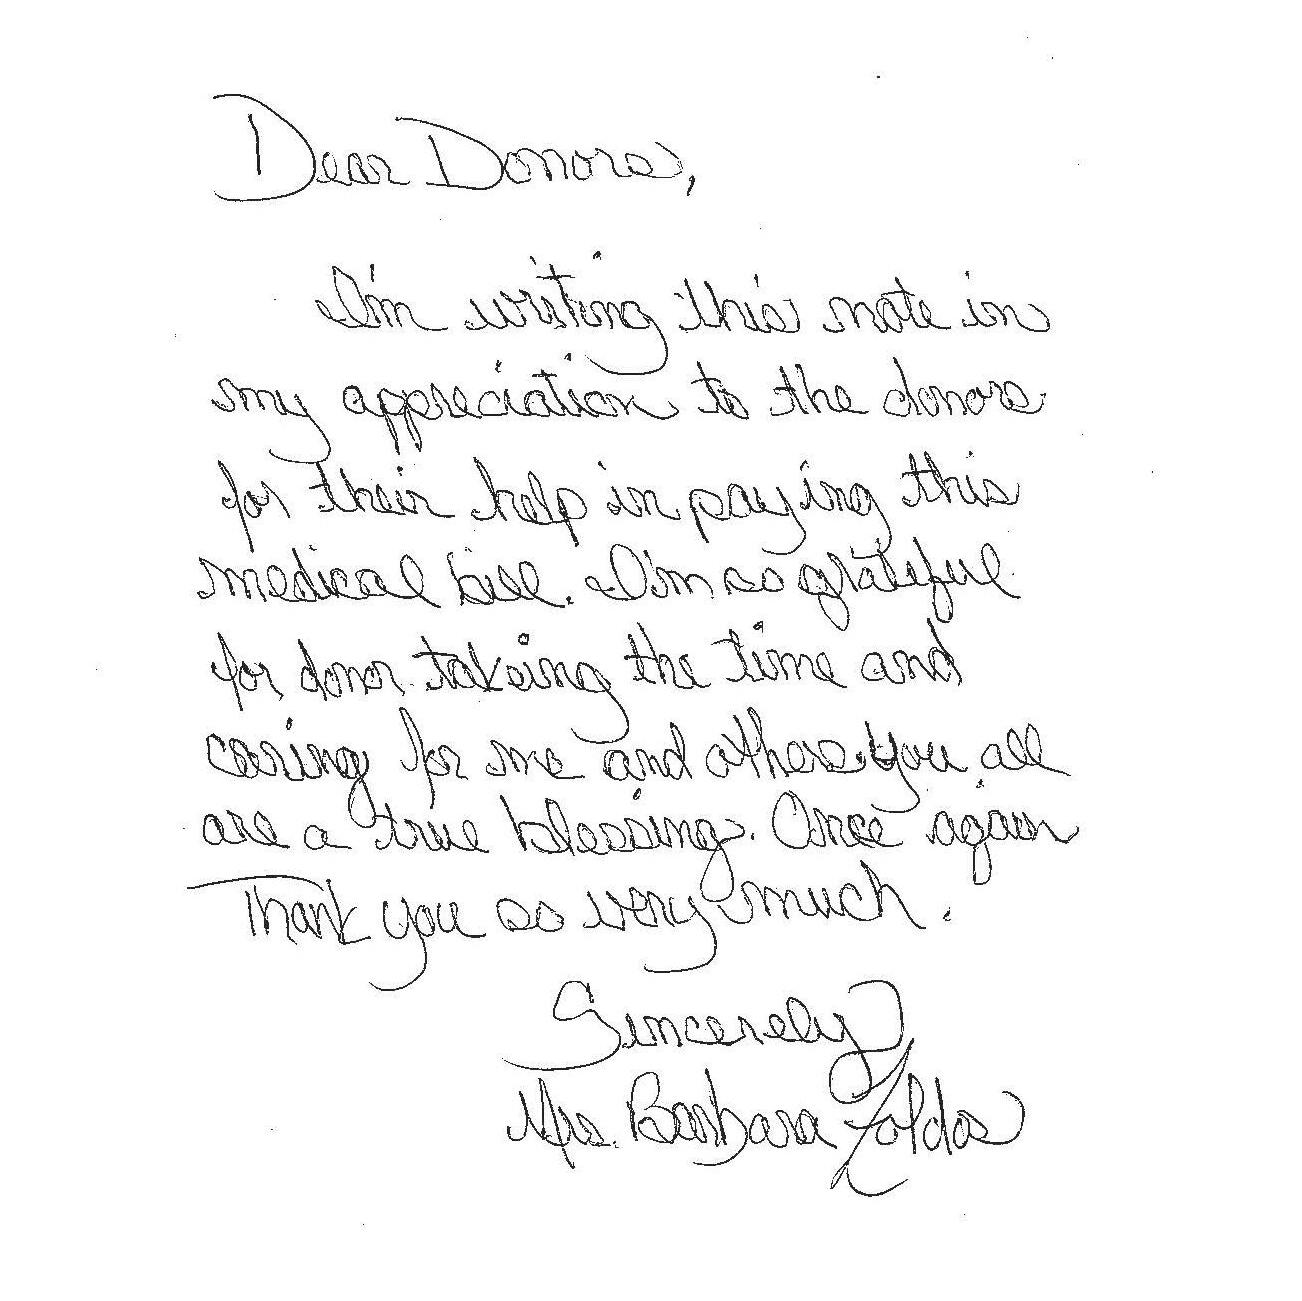 Dear Donors,
I'm writing this note in
my appreciation to the donors
for their help in paying this
medical bill. I'm so grateful
for donor takeing the time and
caring for me and others. you all
are a true blessing. Once again
Thank you so very much.
Sincerely
Mrs. Barbara